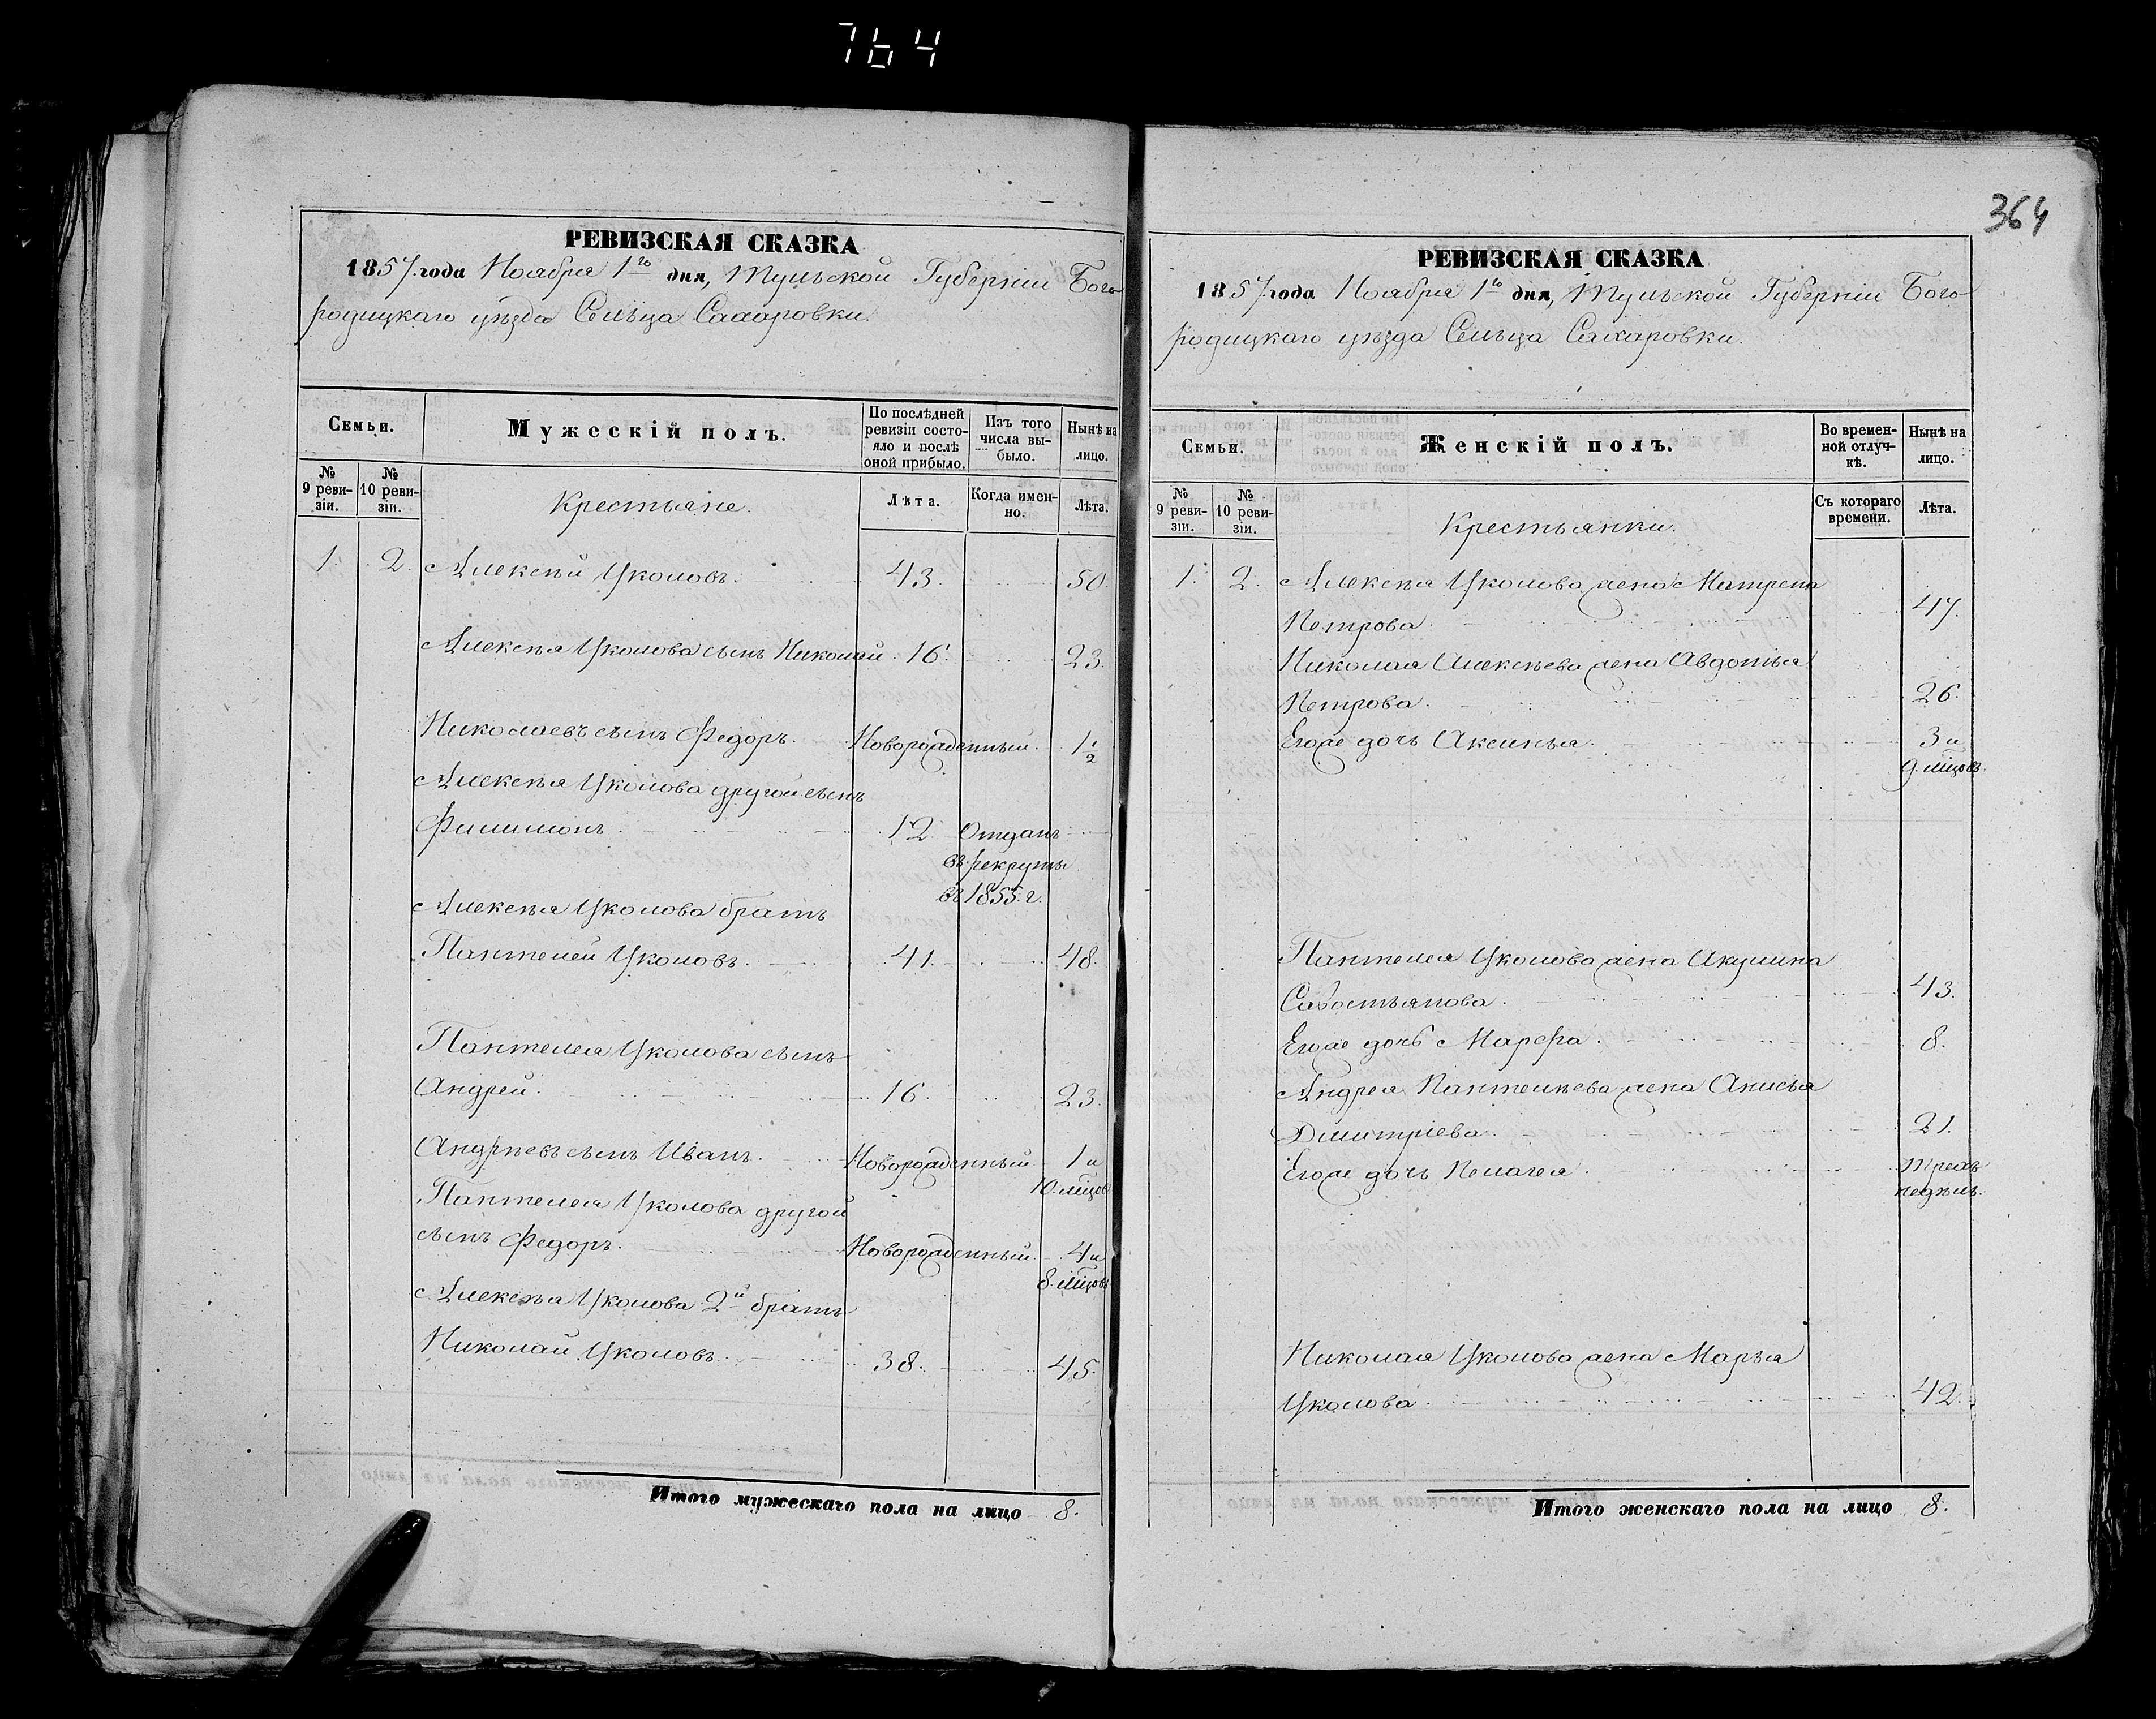 764
364
РЕВИЗСКАЯ СКАЗКА
1857 года Ноября 1го дня, Тульской Губернiи Бого-
родицкаго уѣзда Сельца Сахаровки.
Семьи.
Мужескій полъ.
По послѣдней ревизіи состо-яло и послѣ оной прибыло.
Изъ того числа вы-было.
Нынѣ на лицо.
№ 9 реви-зіи.
№ 10 реви-зіи.
Крестьяне.
Лѣта.
Когда имен-но.
Лѣта.
1. 2. Алексѣй Уколовъ. 43. 50.
Алексѣя Уколова сынъ Николай 16. 23.
Николаевъ сынъ Федоръ. Новорожденный. 1 1/2
Алексѣя Уколова другой сынъ
Филимонъ. 12. Отданъ
въ рекруты
въ 1855 г.
Алексѣя Уколова братъ
Пантелей Уколовъ. 41. 48.
Пантелея Уколова сынъ
Андрей. 16. 23.
Андреевъ сынъ Иванъ. Новорожденный 1 и
10. мцовъ
Пантелея Уколова другой
сынъ Федоръ. Новорожденный. 4 и
8. мцовъ
Алексѣя Уколова 2й братъ
Николай Уколовъ. 38. 45.
Итого мужескаго пола на лицо 8.
РЕВИЗСКАЯ СКАЗКА
1857 года Ноября 1го дня, Тульской Губернiи Бого-
родицкаго уѣзда Сельца Сахаровки.
Семьи.
Женскій полъ.
Во времен-ной отлуч-кѣ.
Нынѣ на лицо.
№ 9 реви-зіи.
№ 10 реви-зіи.
Крестьянки.
Съ котораго времени.
Лѣта.
1. 2. Алексѣя Уколова жена Матрена
Петрова. 47.
Николая Алексѣева жена Авдотья
Петрова. 26.
Егоже дочь Аксинья. 3 и
9. мцовъ.
Пантелея Уколова жена Акулина
Савостьянова. 43.
Егоже дочь Марфа. 8.
Андрея Пантелѣева жена Анисья
Дмитріева. 21.
Егоже дочь Пелагея. трехъ
недѣль.
Николая Уколова жена Марья
Уколова. 42.
Итого женскаго пола на лицо 8.